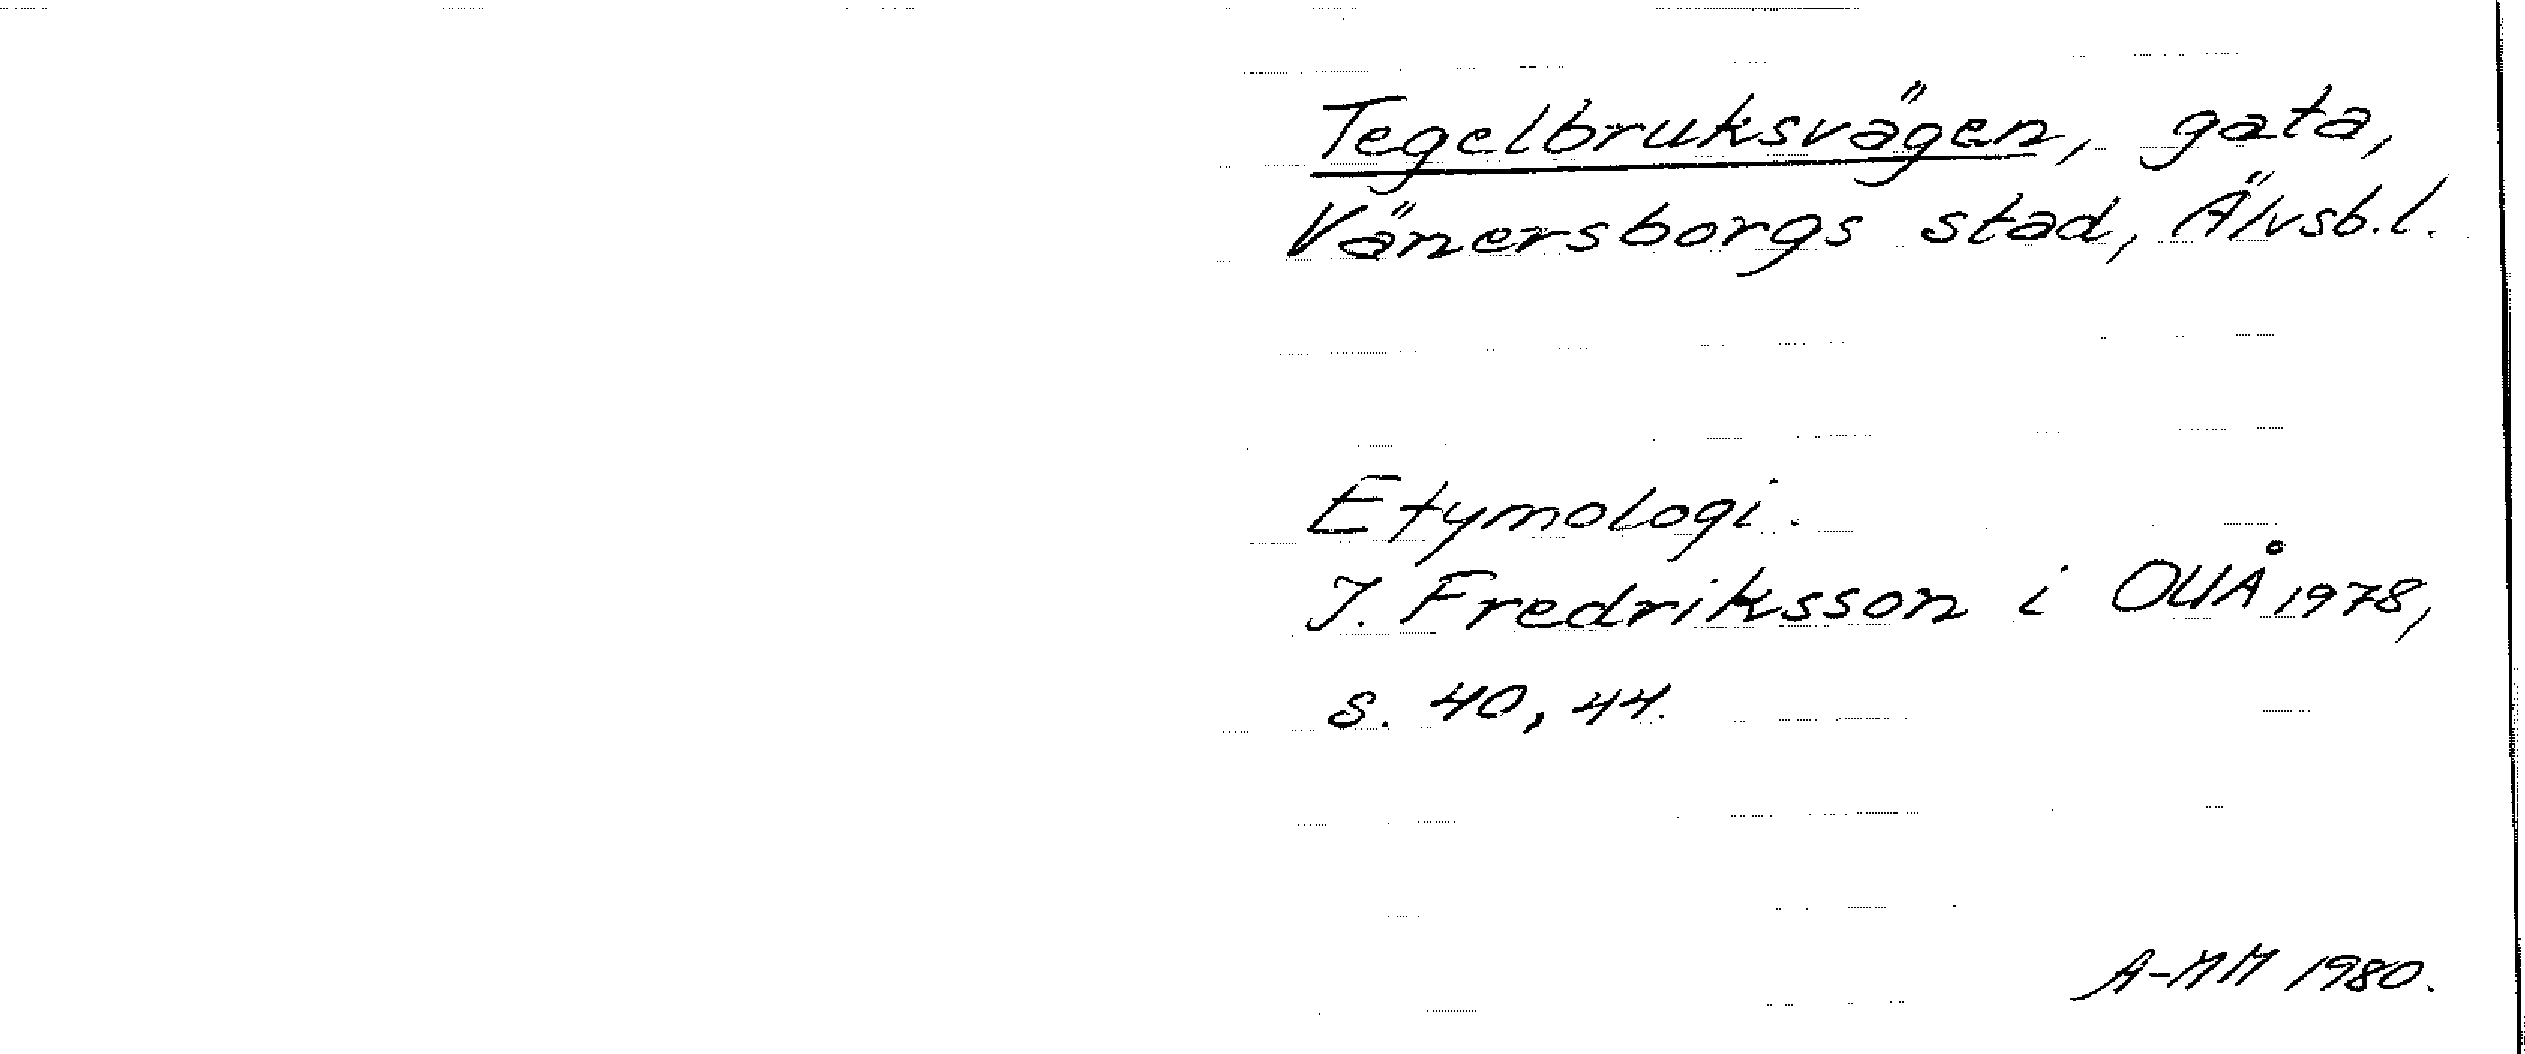 Tegelbruksvägen, gata,
Vänersborgs stad, Älvsb.l.
Etymologi.
I. Fredriksson i OUÅ 1978,
s. 40, 44.
A-MM 1980.